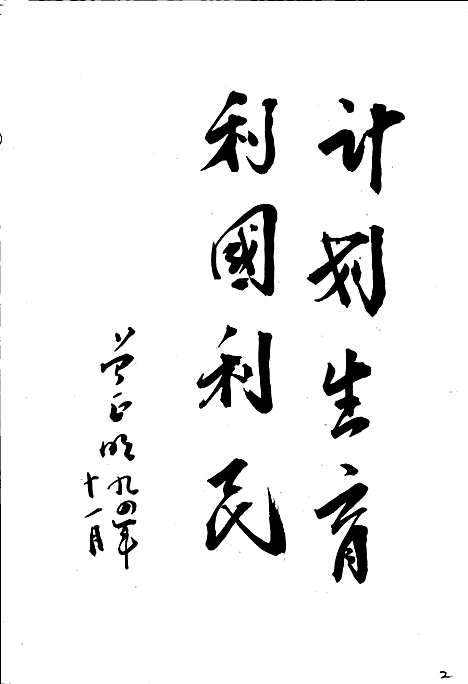 计划生育
利國利民
曾正明
九四年
十一月
2